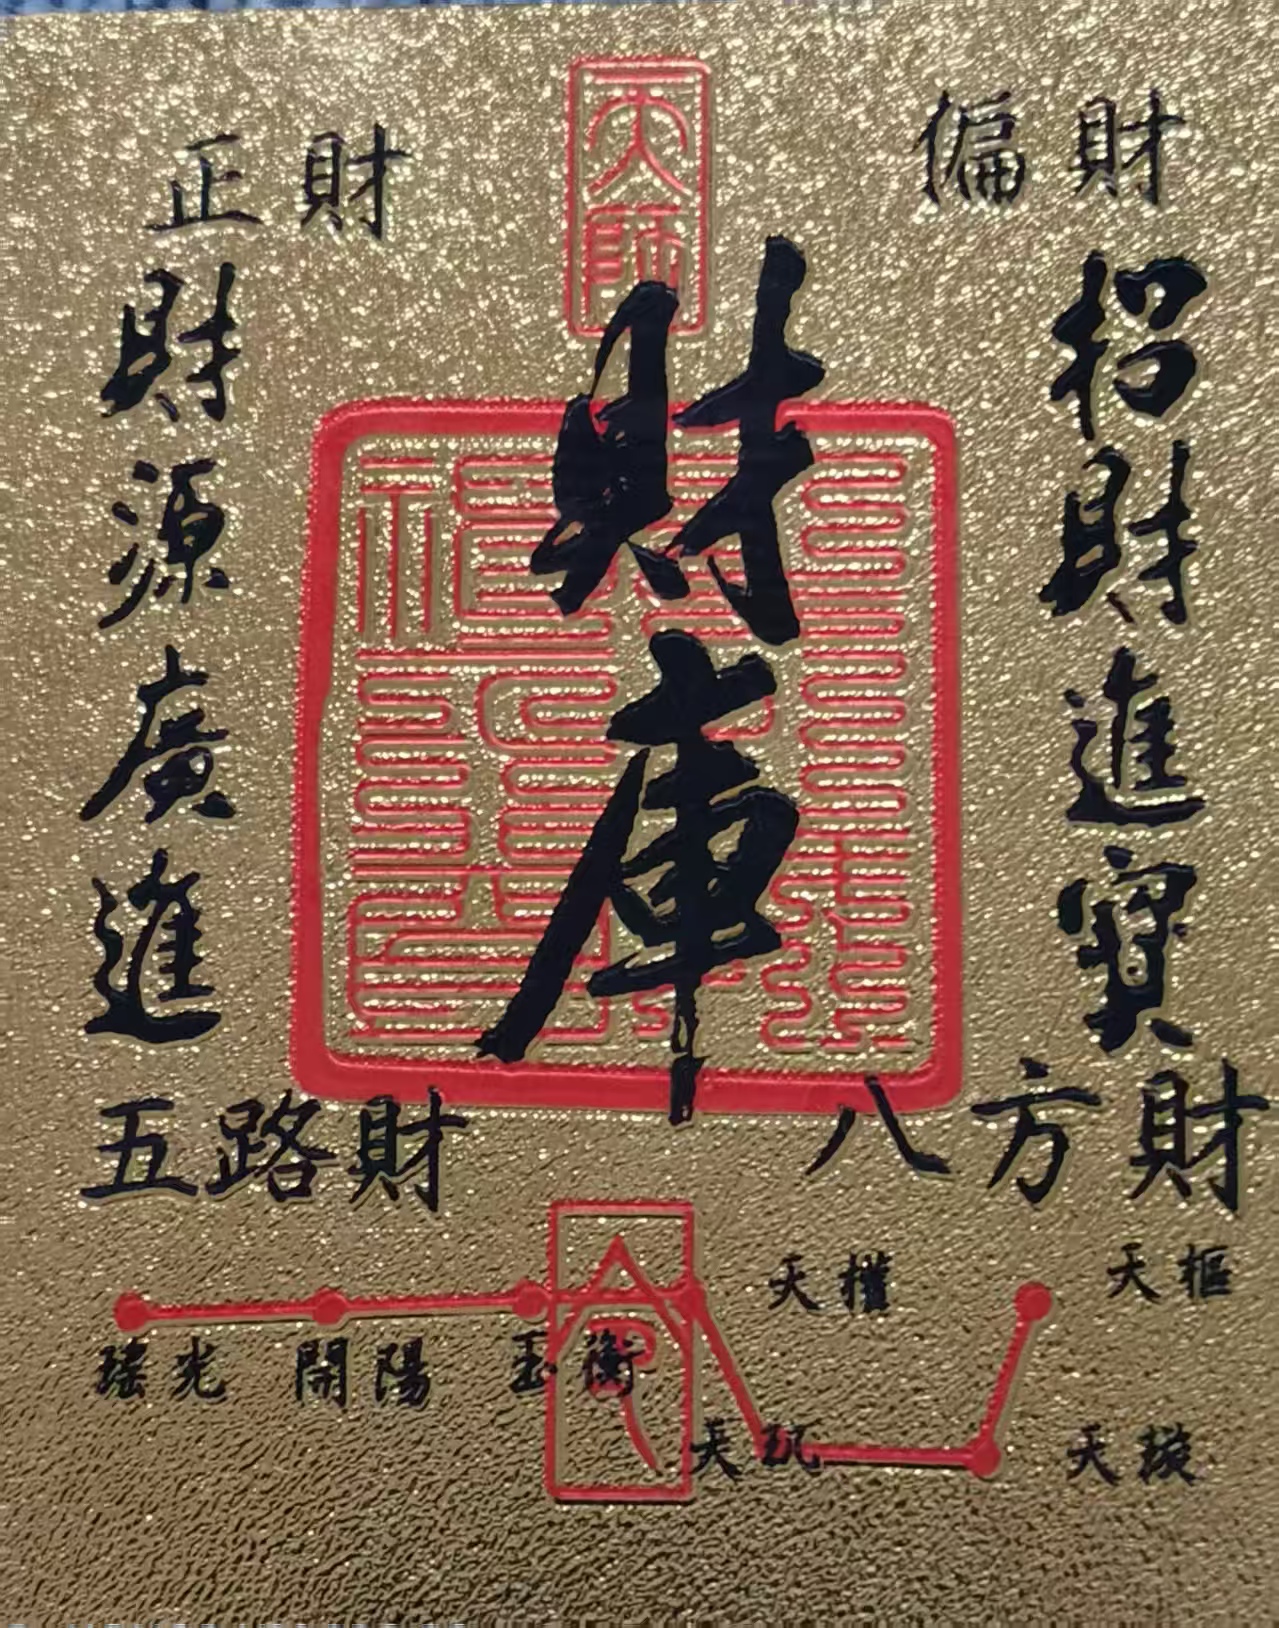 天師
偏財
正財
財庫
招財進寶
財源廣進
八方財
五路財
天樞
天權
瑤光
開陽
玉衡
天璇
天璣
命